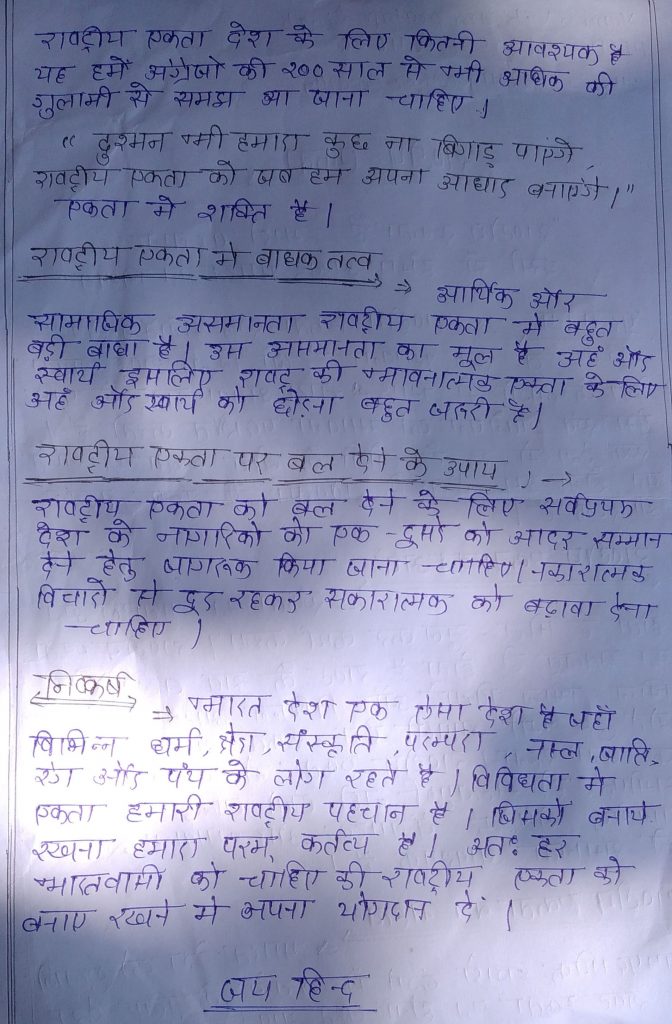 राष्ट्रीय एकता देश के लिए कितनी आवश्यक है
यह हमें अंग्रेजो की २०० साल से भी अधिक की
गुलामी से समझ आ जाना चाहिए।
“ दुश्मन भी हमारा कुछ ना बिगाड़ पाएंगे
राष्ट्रीय एकता को जब हम अपना आधार बनाएंगे।”
एकता मे शक्ति है।
राष्ट्रीय एकता मे बाधक तत्व, ⇒ आर्थिक और
सामाजिक असमानता राष्ट्रीय एकता मे बहुत
बड़ी बाधा है। उस असमानता का मूल है अहँ और
स्वार्थ इसलिए राष्ट्र की भावनात्मक एकता के लिए
अहँ और स्वार्थ को छोड़ना बहुत जरूरी है।
राष्ट्रीय एकता पर बल देने के उपाय, →
राष्ट्रीय एकता को बल देने के लिए सर्वप्रथम
देश के नागरिको को एक-दूसरे को आदर सम्मान
देने हेतु जागरूक किया जाना चाहिए। नकारात्मक
विचारो से दूर रहकर सकारात्मक को बढ़ावा देना
चाहिए।
निष्कर्ष ⇒ भारत देश एक ऐसा देश है जहाँ
विभिन्न धर्म, क्षेत्र, संस्कृति, परम्परा, नस्ल, जाति,
रंग और पंथ के लोग रहते है। विविधता मे
एकता हमारी राष्ट्रीय पहचान है। जिसको बनाये
रखना हमारा परम् कर्तव्य है। अतः हर
भारतवासी को चाहिए की राष्ट्रीय एकता को
बनाए रखने मे अपना योगदान दें।
जय हिन्द